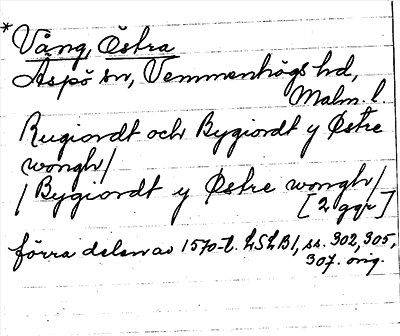 * Vång, Östra
Aspö sn, Vemmenhögs hd,
Malm. l.
Rugiordt och Bygiordt y Østre
wongh/
/ Bygiordt y Østre wongh/
[2 ggr]
förra delen av 1570-t. LSLB1, ss. 302, 305,
307. orig.